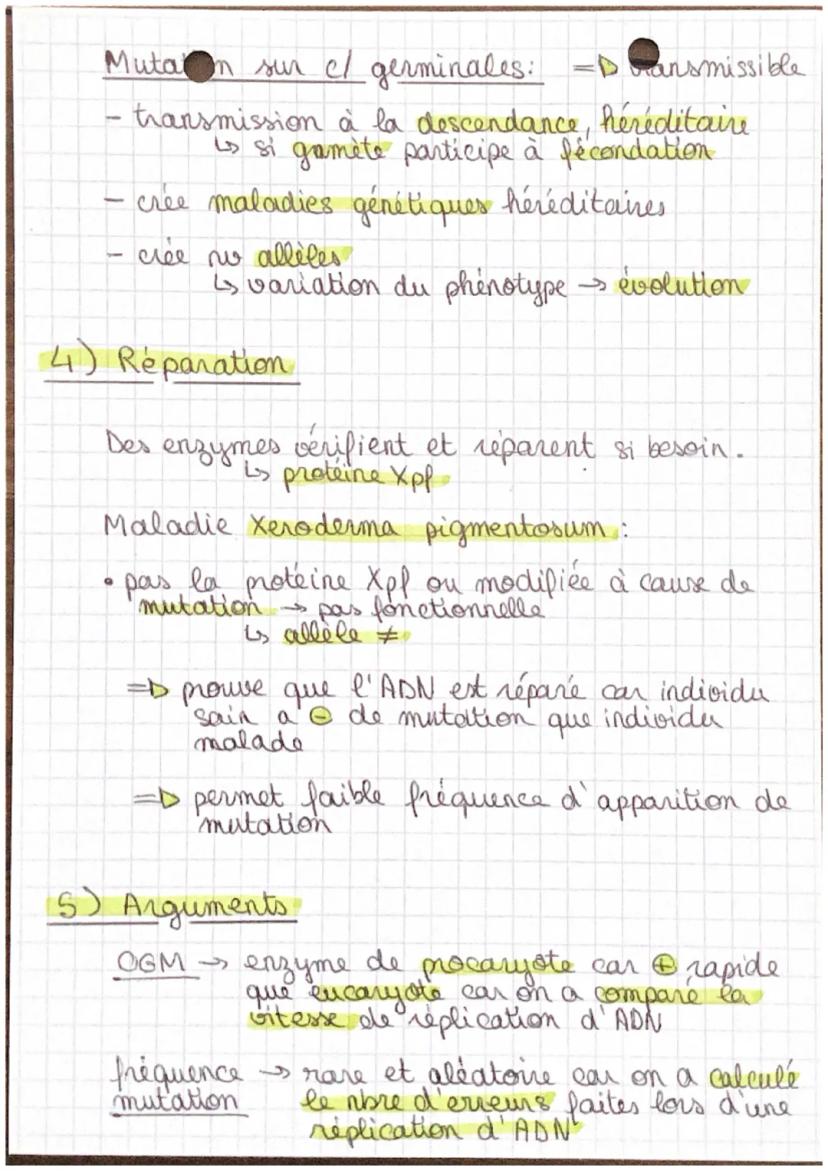 Mutation sur c/ germinales: => transmissible
- transmission à la descendance, héréditaire
↳ si gamète participe à fécondation
- crée maladies génétiques héréditaires
- crée nv allèles
↳ variation du phénotype → évolution
4) Réparation
Des enzymes vérifient et réparent si besoin.
↳ protéine Xpf
Maladie Xeroderma pigmentosum :
• pas la protéine Xpf ou modifiée à cause de
mutation → pas fonctionnelle
↳ allèle ≠
=> prouve que l'ADN est réparé car individu
sain a ⊖ de mutation que individu
malade
=> permet faible fréquence d'apparition de
mutation
5) Arguments
OGM → enzyme de procaryote car ⊕ rapide
que eucaryote car on a comparé la
vitesse de réplication d'ADN
fréquence → rare et aléatoire car on a calculé
mutation le nbre d'erreurs faites lors d'une
réplication d'ADN